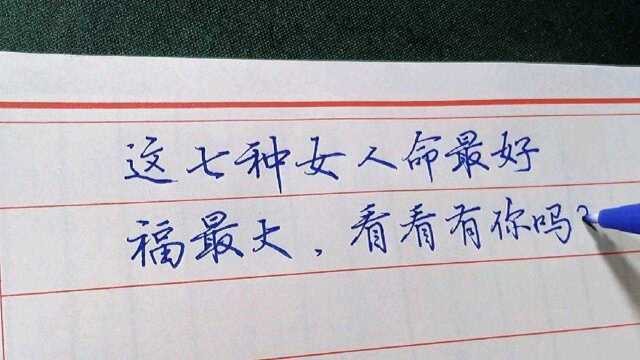 这七种女人命最好
福最大，看看有你吗？